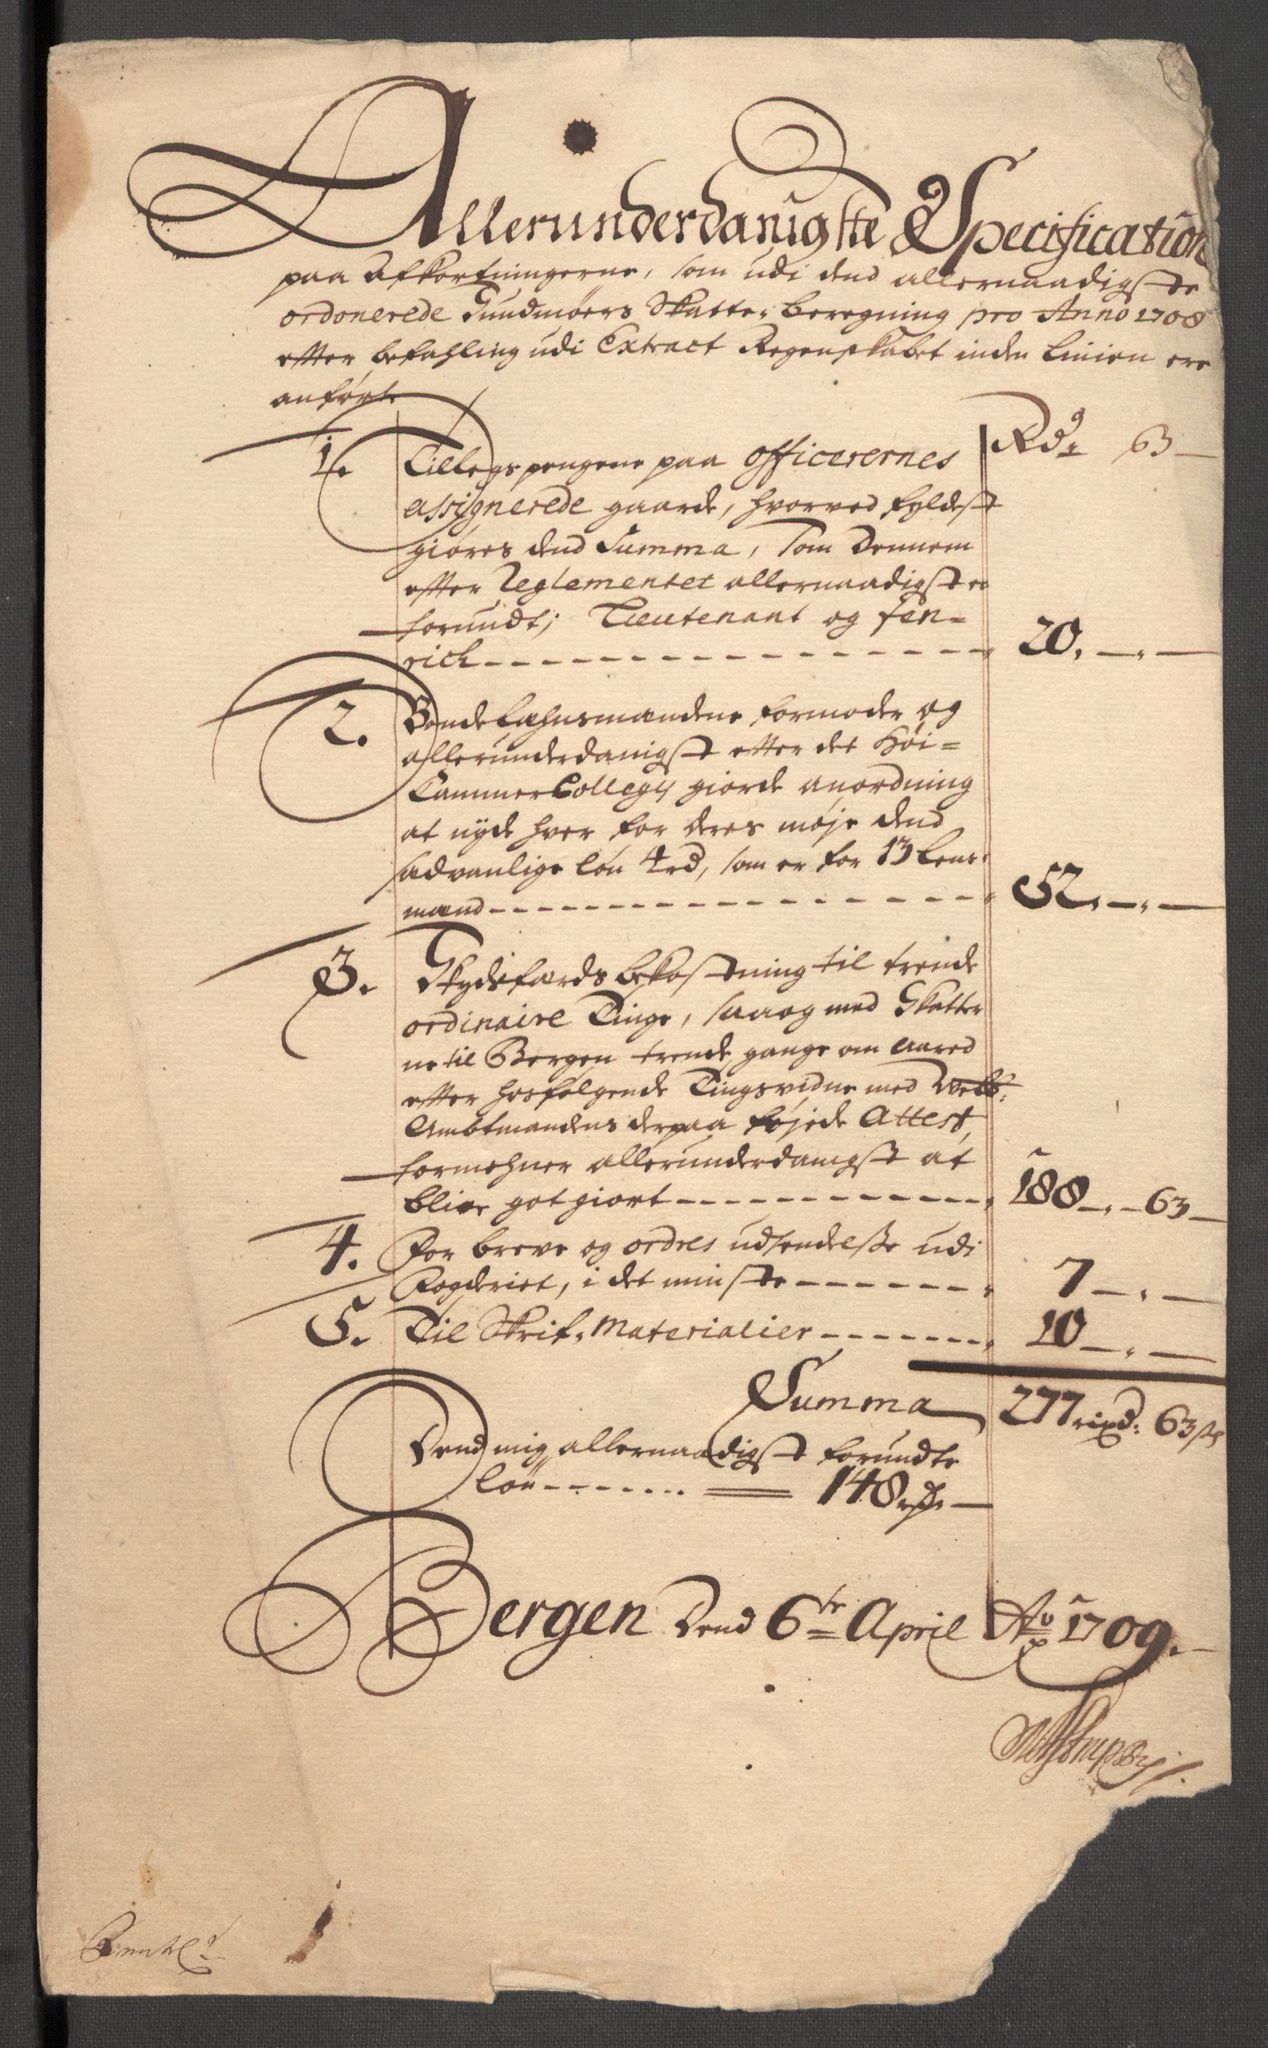 Allerunderdanigste Specification
paa Afkortningerne, som udi dend allernaadigste
ordonerede Sundmøers Skatte-beregning pro Anno 1708
efter befahling udi Extract Regenskabet inden Linien ere
anført.
Rdr ß
1. Tillegspengene paa officerernes
assignerede gaarde, hvorved fyldest
giøres dend Summa, som dennem
efter Reglementet allernaadigst er
forundt; Lieutenant og fen-
rich 20.
2. Bondelehnsmændene formoder og
allerunderdanigst efter det Høi-
CammerCollegij giorde anordning
at nyde hver for deres møje dend
sædvanlige løn 4rd, som er for 13 Lens-
mænd 52.
3. Skydsfærds bekostning til trende
ordinaire Tinge, saa og med Skatter
ne til Bergen trende gange om Aaret
efter hosfølgende Tingsvidne med Welb:
Ambtmandens derpaa føjede Attest,
formehner allerunderdanigst at
blive got giort 188 63
4. For breve og ordres udsendelße udi
Fogderiet, i det minste 7
5. Til Skrif-Materialier 10
Summa 277 rixd: 63 ß
Dend mig allernaadigst forundte
løn 148 rd
Bergen Dend 6te April Ao 1709.